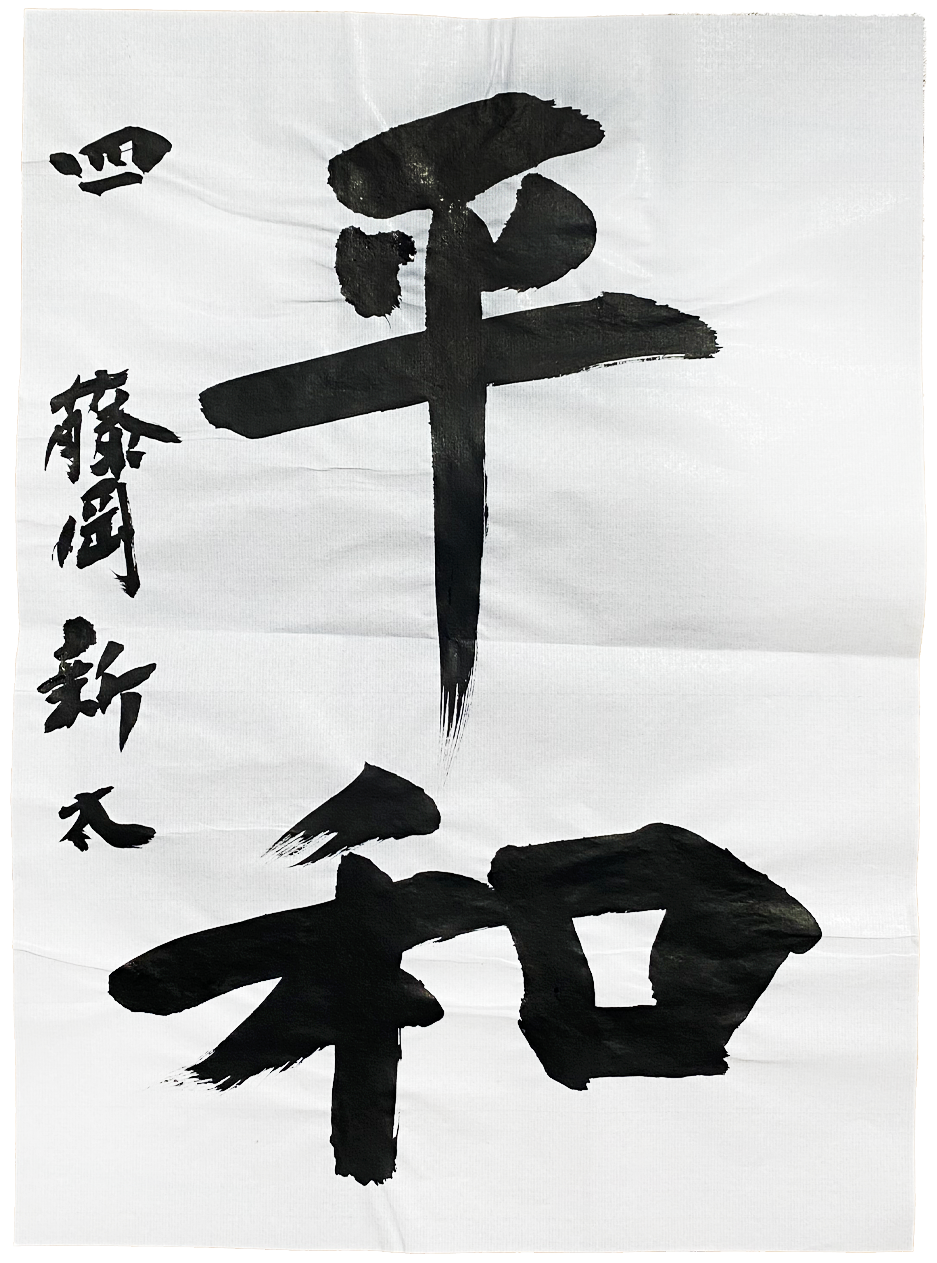 平和
四 藤岡新太